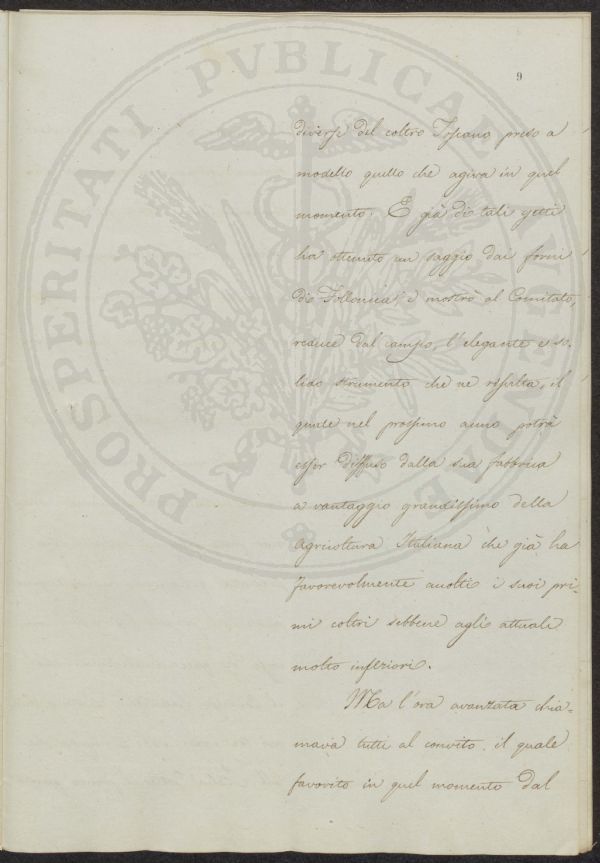 9
diverse del coltro Toscano preso a
modello quello che agiva in quel
momento. E già di tali getti
ha ottenuto un saggio dai forni
di Follonica, e mostrò al Comitato,
reduce dal campo, l'elegante e so-
lido strumento che ne risulta, il
quale nel prossimo anno potrà
esser diffuso dalla sua fabbrica
a vantaggio grandissimo della
Agricoltura Italiana che già ha
favorevolmente accolti i suoi pri-
mi coltri sebbene agli attuali
molto inferiori.
Ma l'ora avanzata chia=
mava tutti al convito, il quale
favorito in quel momento dal
PROSPERITATI PVBLICAE AVGENDAE